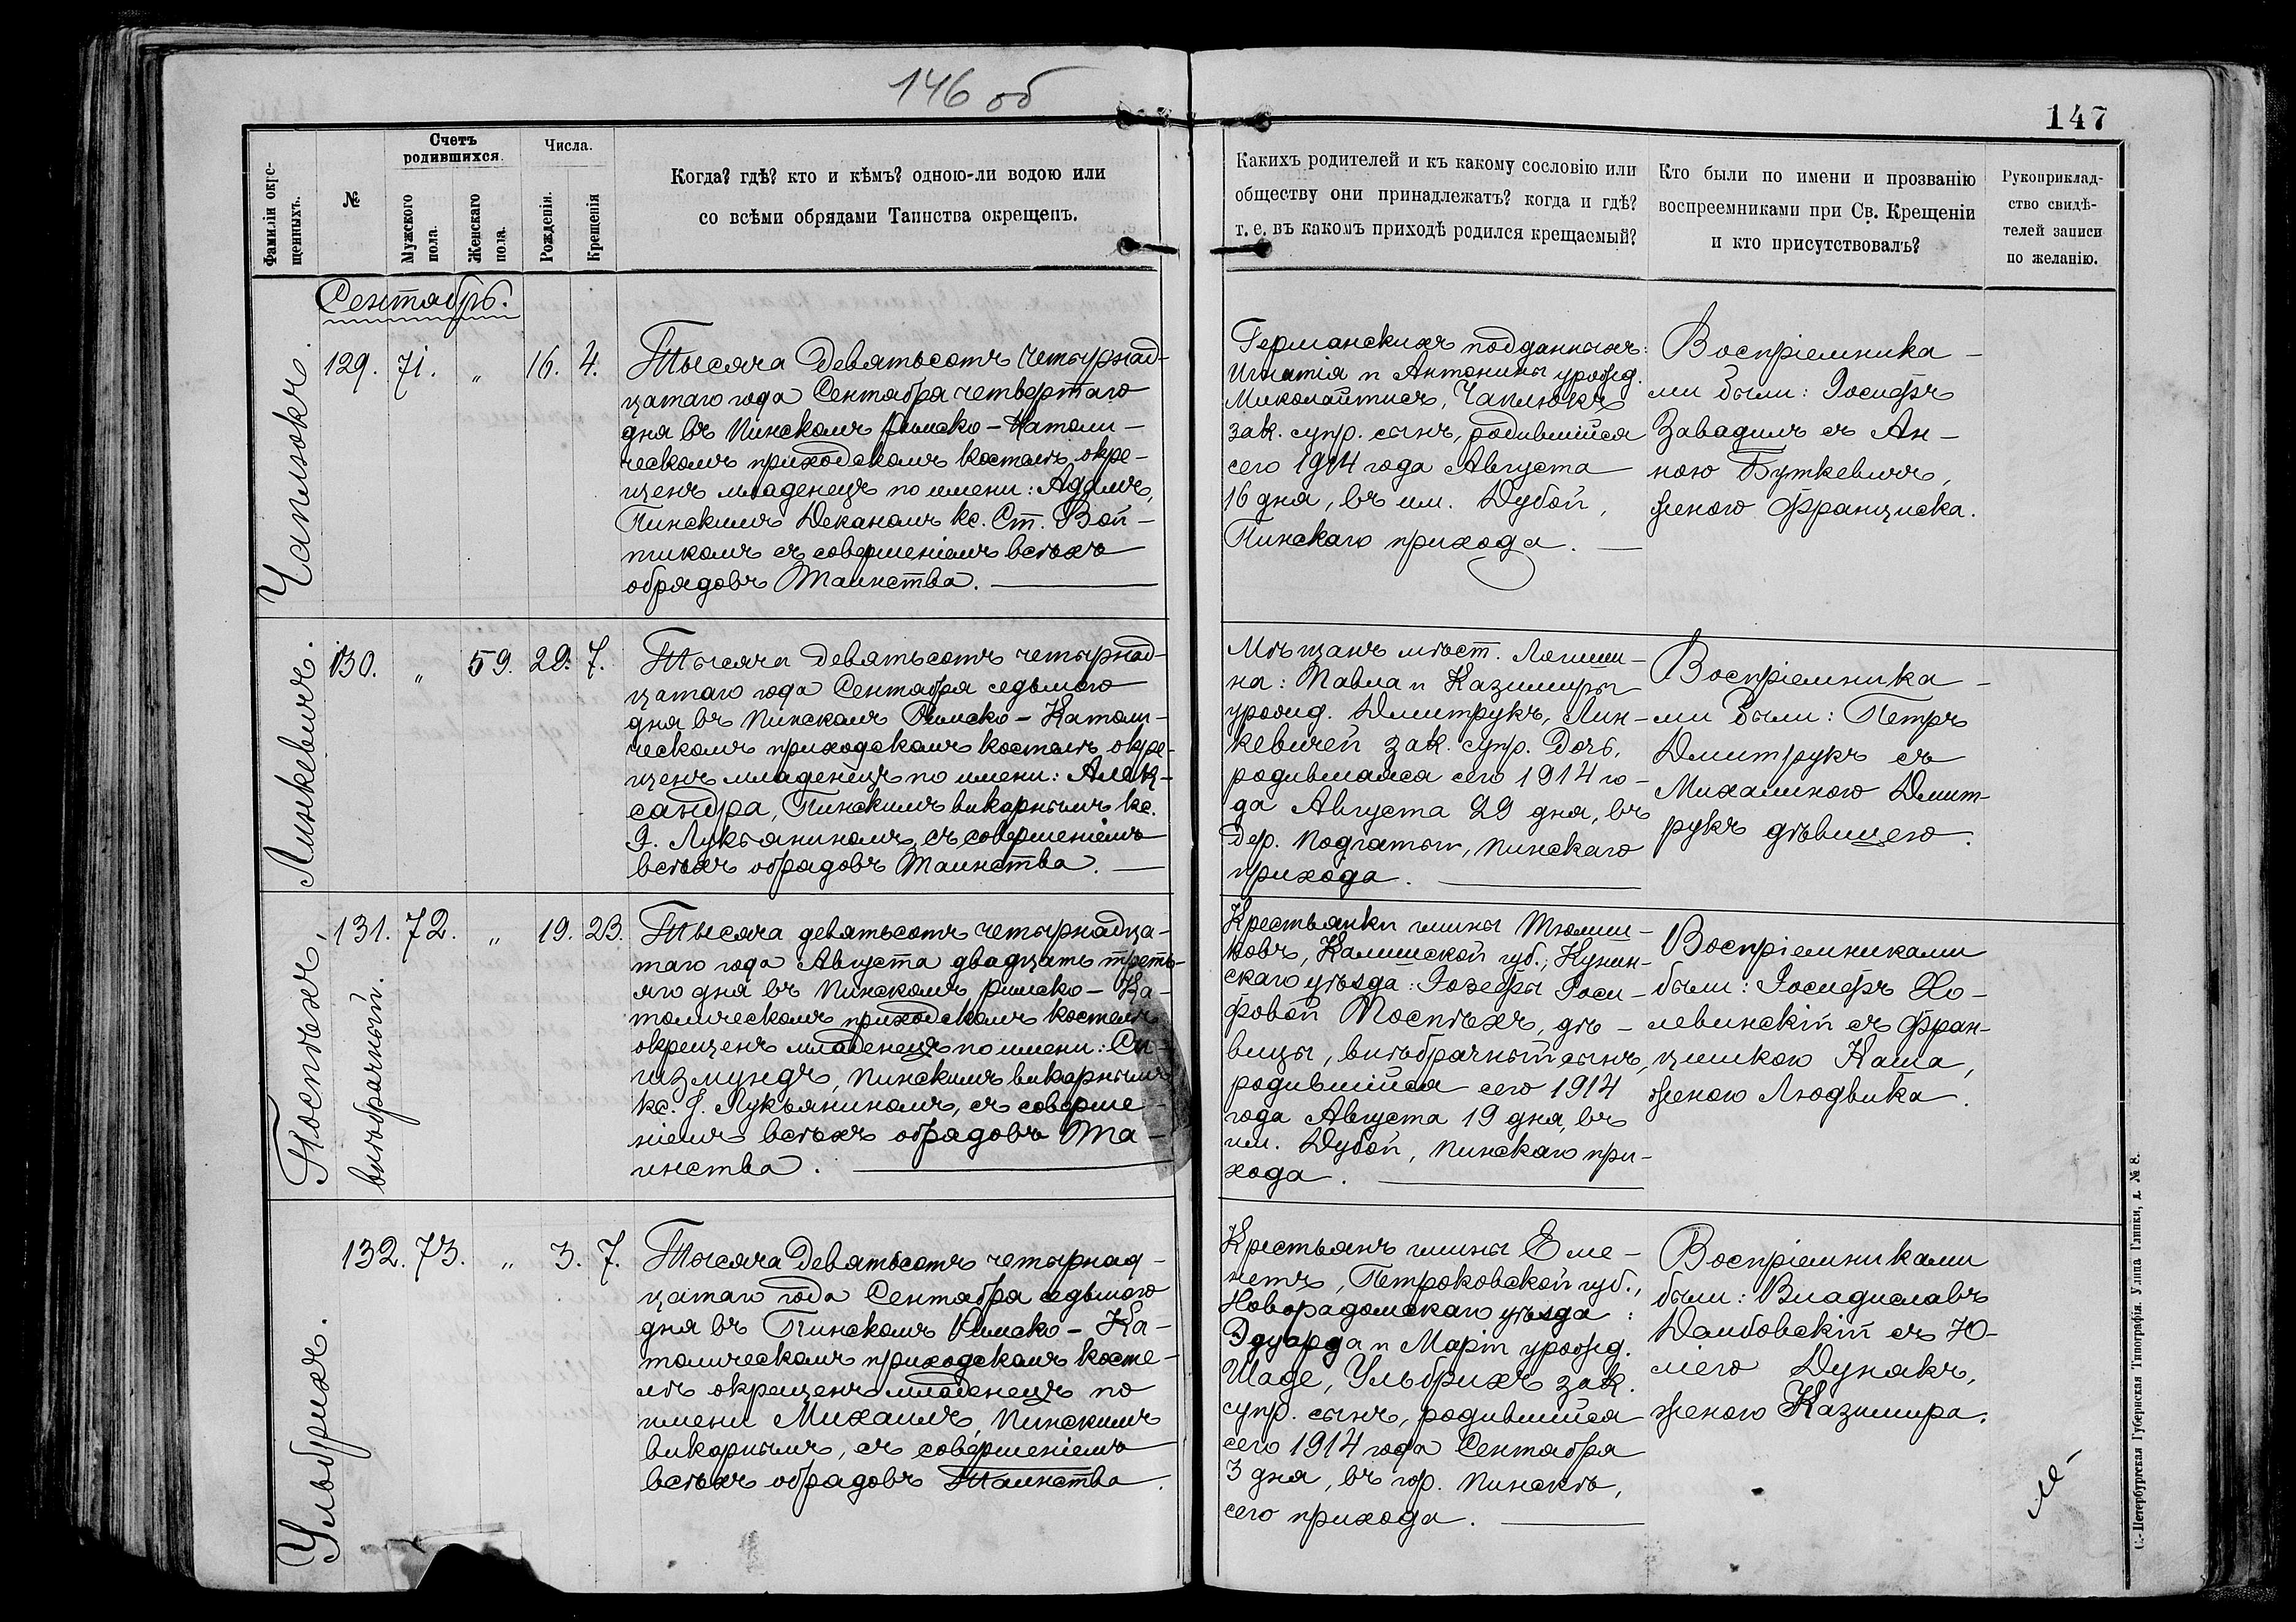 146 об
147
Фамиліи окре-
щенныхъ.
№
Счетъ
родившихся.
Мужского
пола.
Женскаго
пола.
Числа.
Рожденія.
Крещенія
Когда? гдѣ? кто и кѣмъ? одною-ли водою или
со всѣми обрядами Таинства окрещенъ.
Какихъ родителей и къ какому сословію или
обществу они принадлежатъ? когда и гдѣ?
т. е. въ какомъ приходѣ родился крещаемый?
Кто были по имени и прозванію
воспреемниками при Св. Крещеніи
и кто присутствовалъ?
Рукоприклад-
ство свидѣ-
телей записи
по желанію.
Сентябрь.
Чаплюкъ.
129. 71. " 16. 4.
Тысяча девятьсотъ четырнад-
цатаго года Сентября четвертаго
дня въ Пинскомъ Римско-Католи-
ческомъ приходскомъ костелѣ окре-
щенъ младенецъ по имени: Адамъ,
Пинскимъ Деканомъ кс. Ст. Вой-
тикомъ съ совершеніемъ всѣхъ
обрядовъ Таинства.
Германскихъ подданныхъ:
Игнатія и Антонины урожд.
Миколайтисъ, Чаплюкъ
зак. супр. сынъ, родившійся
сего 1914 года Августа
16 дня, въ им. Дубой,
Пинскаго прихода.
Воспріемника-
ми были: Іосифъ
Завадилъ съ Ан-
ною Буткевичъ,
женою Франциска.
Линкевичъ.
130. " 59. 29. 7.
Тысяча девятьсотъ четырнад-
цатаго года Сентября седьмого
дня въ Пинскомъ Римско-Католи-
ческомъ приходскомъ костелѣ окре-
щенъ младенецъ по имени: Алек-
сандра, Пинскимъ викарнымъ кс.
І. Лукьяниномъ, съ совершеніемъ
всѣхъ обрядовъ Таинства.
Мѣщанъ мѣст. Логиши-
на: Павла и Казимиры
урожд. Дмитрукъ, Лин-
кевичей зак. супр. дочь,
родившаяся сего 1914 го-
да Августа 29 дня, въ
дер. Подгатьи, Пинскаго
прихода.
Воспріемника-
ми были: Петръ
Дмитрукъ съ
Михалиною Дмит-
рукъ дѣвицею.
Поспѣхъ,
внѣбрачный.
131. 72. " 19. 23.
Тысяча девятьсотъ четырнадца-
таго года Августа двадцать треть-
яго дня въ Пинскомъ римско-Ка-
толическомъ приходскомъ костелѣ
окрещенъ младенецъ по имени: Си-
гизмундъ, Пинскимъ викарнымъ
кс. І. Лукьяниномъ, съ соверше-
ніемъ всѣхъ обрядовъ Та-
инства.
Крестьянки гмины Тюлиш-
ковъ, Калишской губ., Кунин-
скаго уѣзда: Іозефы Іоси-
фовой Поспѣхъ, дѣ-
вицы, внѣбрачный сынъ,
родившійся сего 1914
года Августа 19 дня, въ
им. Дубой, Пинскаго при-
хода.
Воспріемниками
были: Іосифъ Хо-
левинскій съ Фран-
цишкою Каша,
женою Людвика.
Ульбрихъ.
132. 73. " 3. 7.
Тысяча девятьсотъ четырнад-
цатаго года Сентября седьмого
дня въ Пинскомъ Римско-Ка-
толическомъ приходскомъ косте-
лѣ окрещенъ младенецъ по
имени Михаилъ, Пинскимъ
викарнымъ, съ совершеніемъ
всѣхъ обрядовъ Таинства.
Крестьянъ гмины Еме-
нетъ, Петроковской губ.,
Новорадомскаго уѣзда:
Эдуарда и Маріи урожд.
Шаде, Ульбрихъ зак.
супр. сынъ, родившійся
сего 1914 года Сентября
3 дня, въ гор. Пинскѣ,
сего прихода.
Воспріемниками
были: Владиславъ
Домбовскій съ Ю-
ліею Дунякъ,
женою Казимира.
С.-Петербургская Губернская Типографія. Улица Глинки, д. № 8.